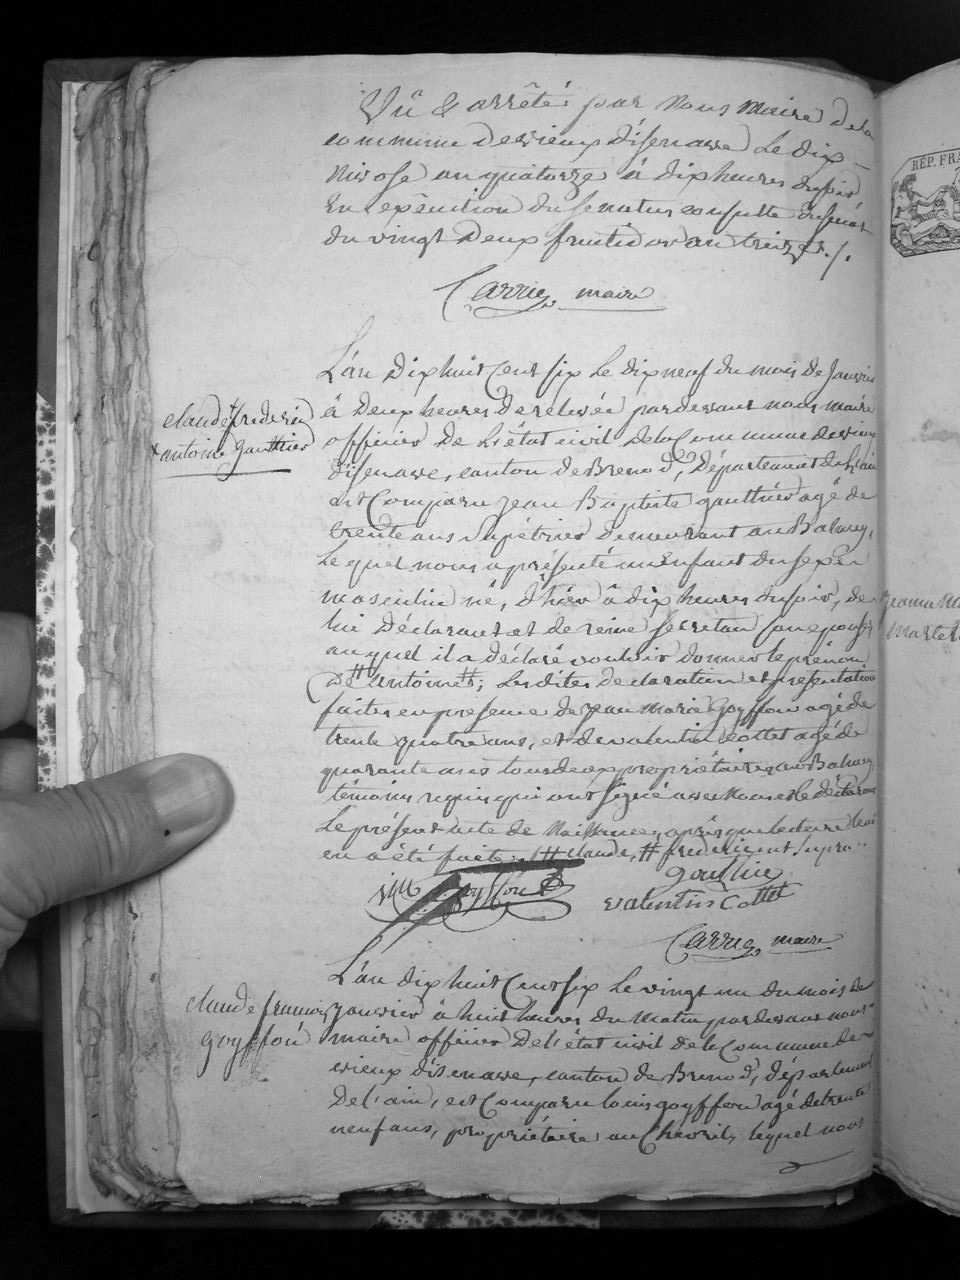 Vû & arrêté par nous maire de la
commune de vieux d'isenave le dix
nivose an quatorze à dix heures du soir
En exécution du senatus consulte
du vingt deux fructidor an treize ./.
Carrier maire
L'an dix huit Cent six le dix neuf du mois de Janvier
à deux heures de relevée pardevant nous maire
officier de l'état civil de la Commune de vieux
d'isenave, canton de Brenod, Département de l'ain
est Comparu jean Baptiste gauthier agé de
trente ans demeurant au Balmey,
Lequel nous a présenté un Enfant du sexe
masculin né, d'hier à dix heures du soir, de
lui Déclarant et de reine secretan son epouse
auquel il a déclaré vouloir donner le prénom
De # antoine #; Lesdites declaration et presentation
faites en presence de jean marie Goyffon agé de
trente quatre ans, et de valentin Cottet agé de
quarante ans tous deux propriétaires au Balmey,
témoins requis qui ont signé avec nous et le déclarant
Le présent acte de Naissance, après que lecture leur
en a été faite. # claude, # frederic
gauthier
J M goyffon
valentin Cottet
Carrier maire
claude frederic
antoine gauthier
L'an dix huit Cent six le vingt un du mois de
janvier à huit heures du matin pardevant nous
maire officier de l'état civil de la Commune de
vieux d'isenave, canton de Brenod, département
De l'ain, est Comparu louis goyffon agé de trente
neuf ans, propriétaire au Chevril, lequel nous
claude francois
goyffon
RÉP. FRA
jeanne M
Martel